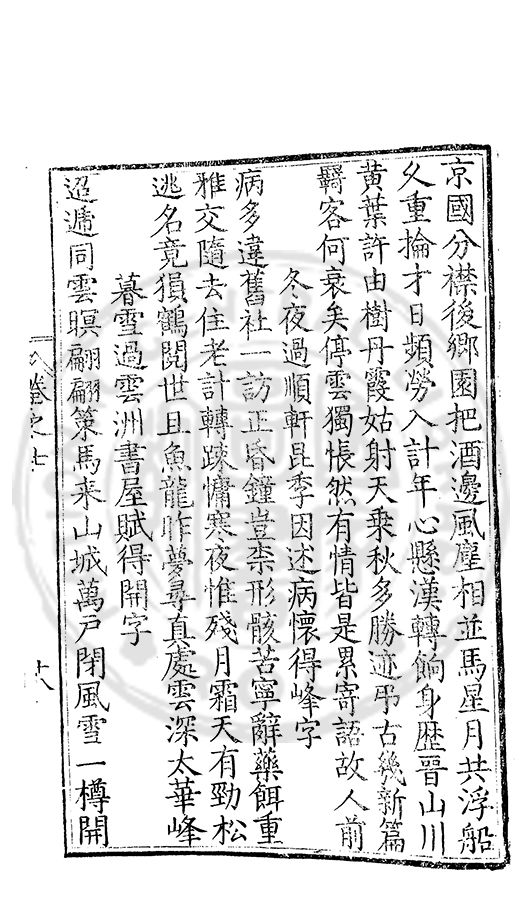 京國分襟後鄉園把酒邊風塵相並馬星月共浮船
久重掄才日頻勞入計年心懸漢轉餉身歷晉山川
黃葉許由樹丹霞姑射天乘秋多勝迹弔古幾新篇
羇客何衰矣停雲獨悵然有情皆是累寄語故人前
冬夜過順軒昆季因述病懷得峰字
病多違舊社一訪正昏鐘豈柰形骸苦寧辭藥餌重
雅交隨去住老計轉踈慵寒夜惟殘月霜天有勁松
逃名竟猿鶴閱世且魚龍昨夢尋真處雲深太華峰
暮雪過雲洲書屋賦得開字
迢遞同雲暝翩翩策馬来山城萬戶閉風雪一樽開
卷之七
十八